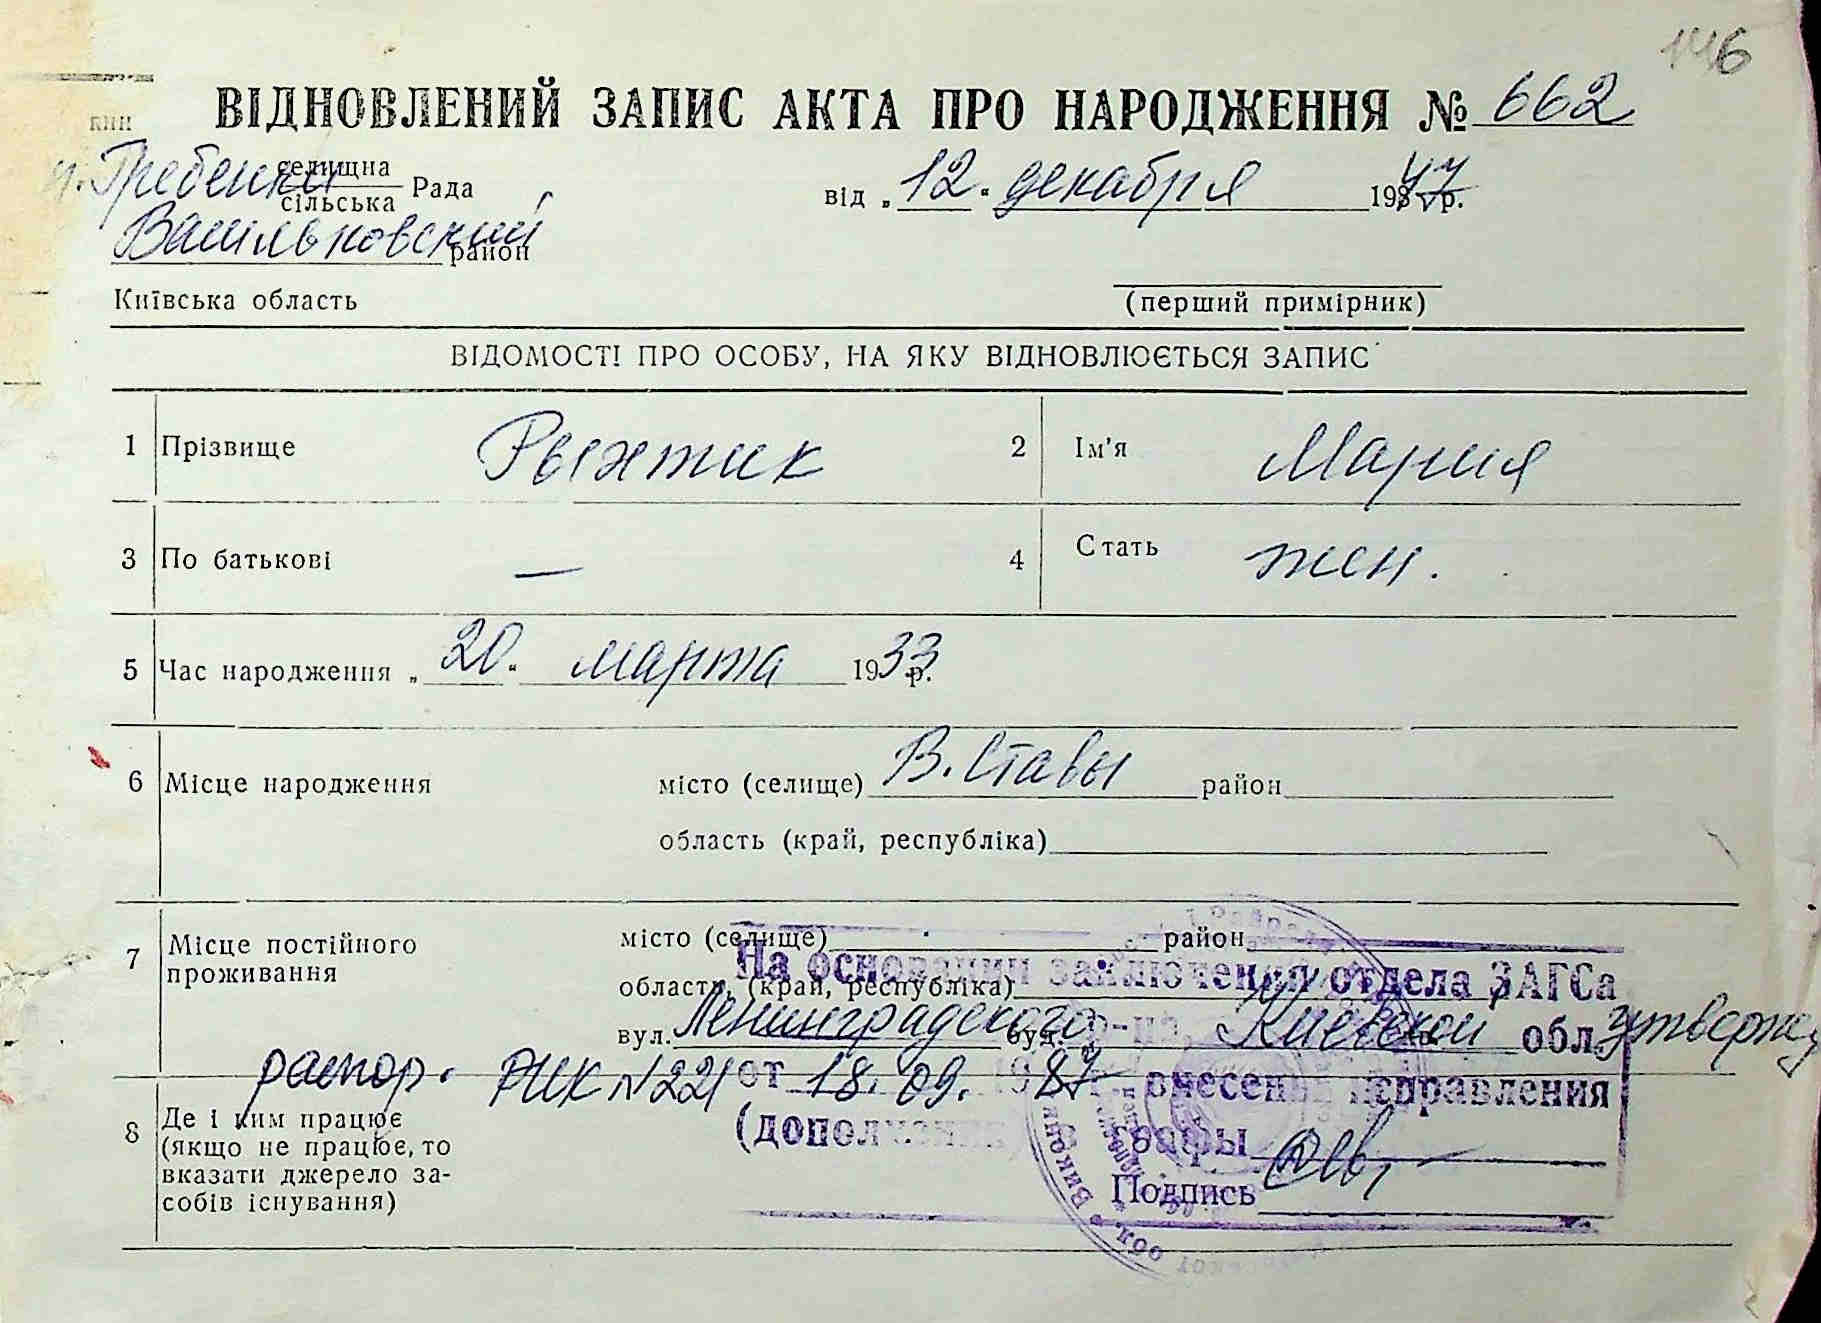 146
ВІДНОВЛЕНИЙ ЗАПИС АКТА ПРО НАРОДЖЕННЯ № 662
п. Гребенки селищна сільська Рада
від „12" декабря 1947 р.
Васильковский район
Київська область
(перший примірник)
ВІДОМОСТІ ПРО ОСОБУ, НА ЯКУ ВІДНОВЛЮЄТЬСЯ ЗАПИС
1 Прізвище Рыхтик 2 Ім'я Мария
3 По батькові — 4 Стать жен.
5 Час народження „20" марта 1933 р.
6 Місце народження місто (селище) В. Ставы район
область (край, республіка)
7 Місце постійного проживання місто (селище) район
область, (край, республіка)
вул. буд.
На основании заключения отдела ЗАГСа
Ленинградского р-на, Киевской обл.
распор. РИК №221 от 18.09.1987 внесены исправления
(дополнения) в графы
Подпись
8 Де і ким працює
(якщо не працює, то
вказати джерело за-
собів існування)